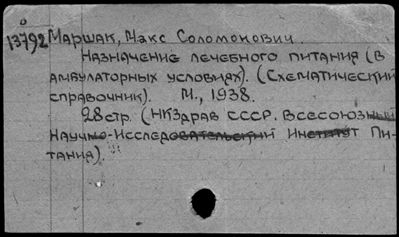 13792 Маршак, Макс Соломонович
Назначение лечебного питания (в
амбулаторных условиях). (Схематический
справочник). М., 1938.
28стр. (НКЗдрав СССР. Всесоюзный
Научно-Исследовательский Институт Пи-
тания).